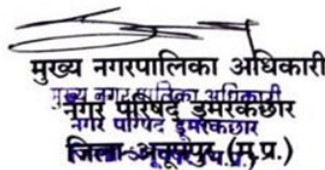 मुख्य नगरपालिका अधिकारी
मुख्य नगर पालिका अधिकारी
नगर परिषद डूमरकछार
नगर परिषद डूमरकछार
जिला-अनूपपुर (म.प्र.)